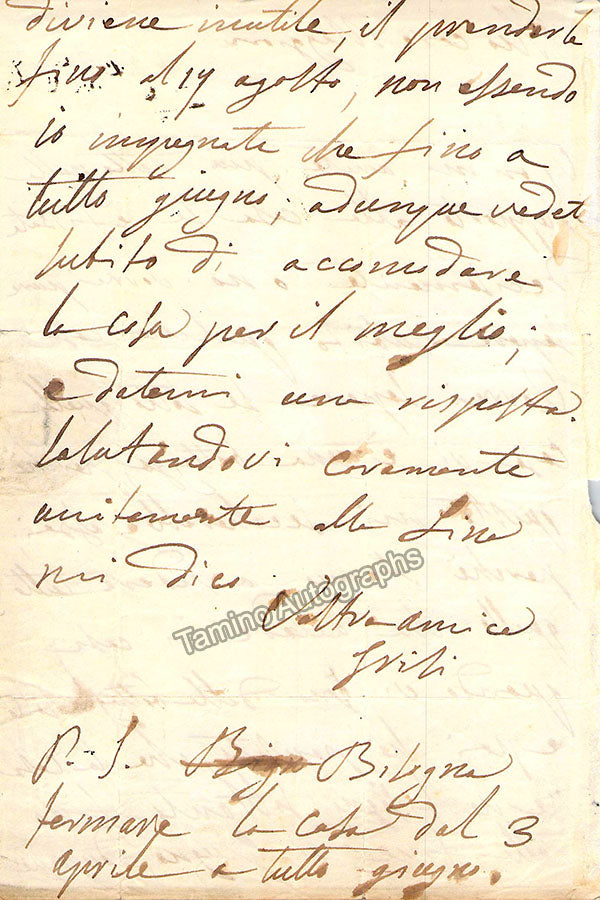 diviene inutile, il prenderla
fino al 14 agosto, non essendo
io impegnata che fino a
tutto giugno; adunque vedete
subito di accomodare
la cosa per il meglio;
e datemi una risposta.
Salutandovi caramente
unitamente alla Lina
mi dico
Vostra amica
Grisi
P. S. Bisogna
fermare la casa dal 3
aprile a tutto giugno.
Tamino Autographs